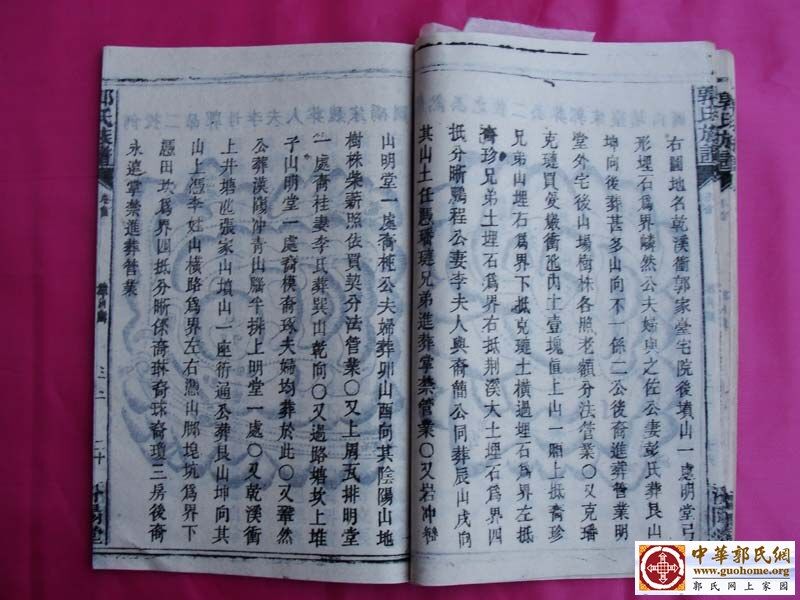 郭氏族譜
右圖地名乾溪衝郭家臺宅院後墳山一處明堂弓
形埋石爲界 然公夫婦與之佐公妻彭氏葬艮山
坤向後葬甚多山向不一係二公後裔進葬管業明
堂外宅後山場樹林各照老額分法管業〇又克璠
克璉買受 衝 內土壹塊直上山一 上抵裔珍
兄弟山埋石爲界下抵克璉土橫過埋石爲界左抵
裔珍兄弟土埋石爲界右抵荆溪大土埋石爲界四
抵分晰鵬程公妻李夫人與裔簡公同葬辰山戌向
其山土任憑璠璉兄弟進葬掌禁管業〇又岩冲
山明堂一處裔 公夫婦葬卯山酉向其陰陽山地
樹株柴薪照依買契分法管業〇又上周瓦排明堂
一處裔桂妻李氏葬巽山乾向〇又過路塘坎上堆
子山明堂一處裔模裔琢夫婦均葬於此〇又 然
公葬漢陽冲青山 半排上明堂一處〇又乾溪衝
上井塘 張家山墳山一座衍通公葬艮山坤向其
山上憑李姓山橫路爲界左右憑山脚埠坑爲界下
憑田坎爲界四抵分晰係裔琳裔珠裔瓊三房後裔
永遠掌禁進葬管業
郭氏族譜
卷首
中華郭氏網
www.guohome.org
郭氏网上家园